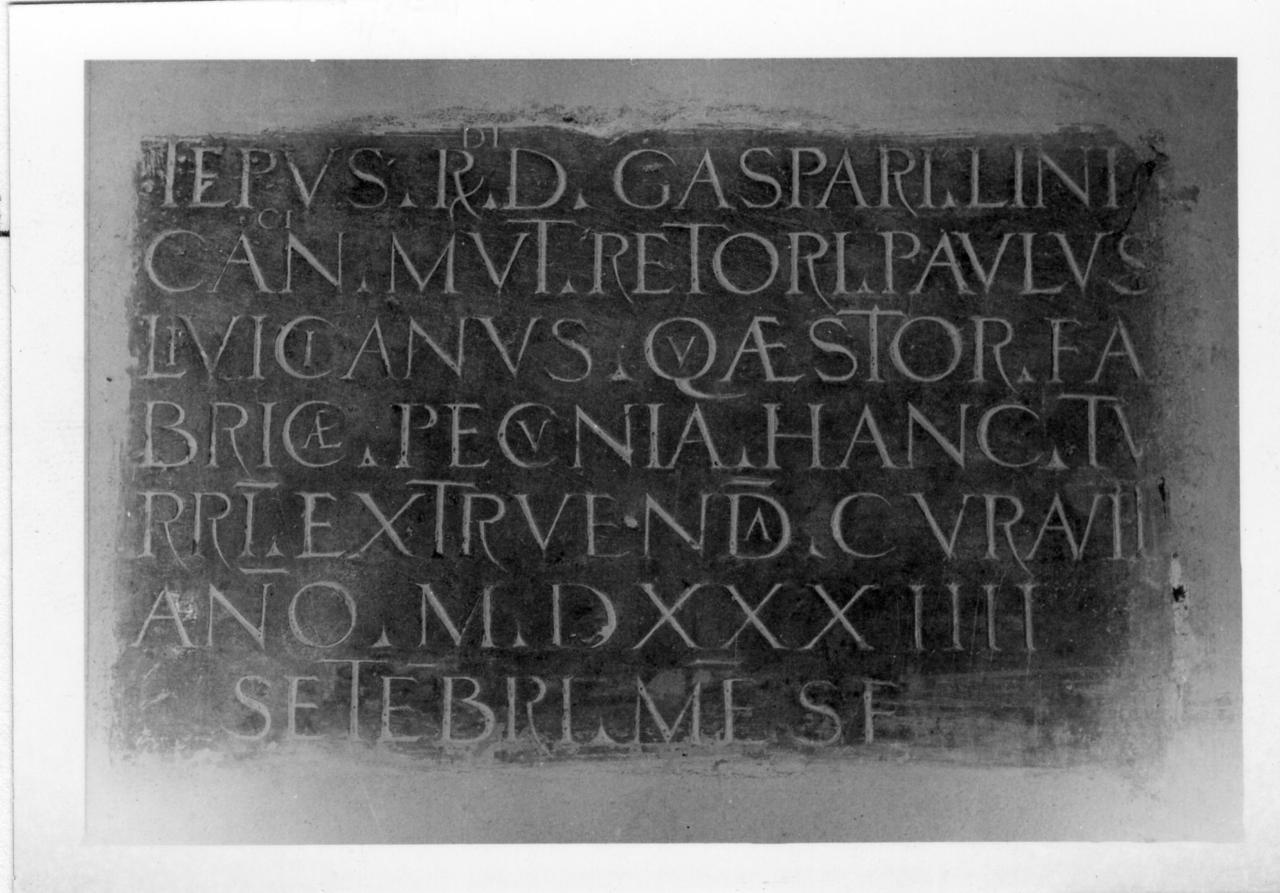 TEPVS . R.DI D . GASPARI . LINI
CAN.CI . MVT . RETORI . PAVLVS
LIVICIANVS . QVÆSTOR . FA
BRICÆ . PECVNIA . HANC . TV
RRĪ . EXTRVENDĀ . CVRAVIT
AN̄O . M . DXXXIIIII
SETĒBRI . M̄E SF